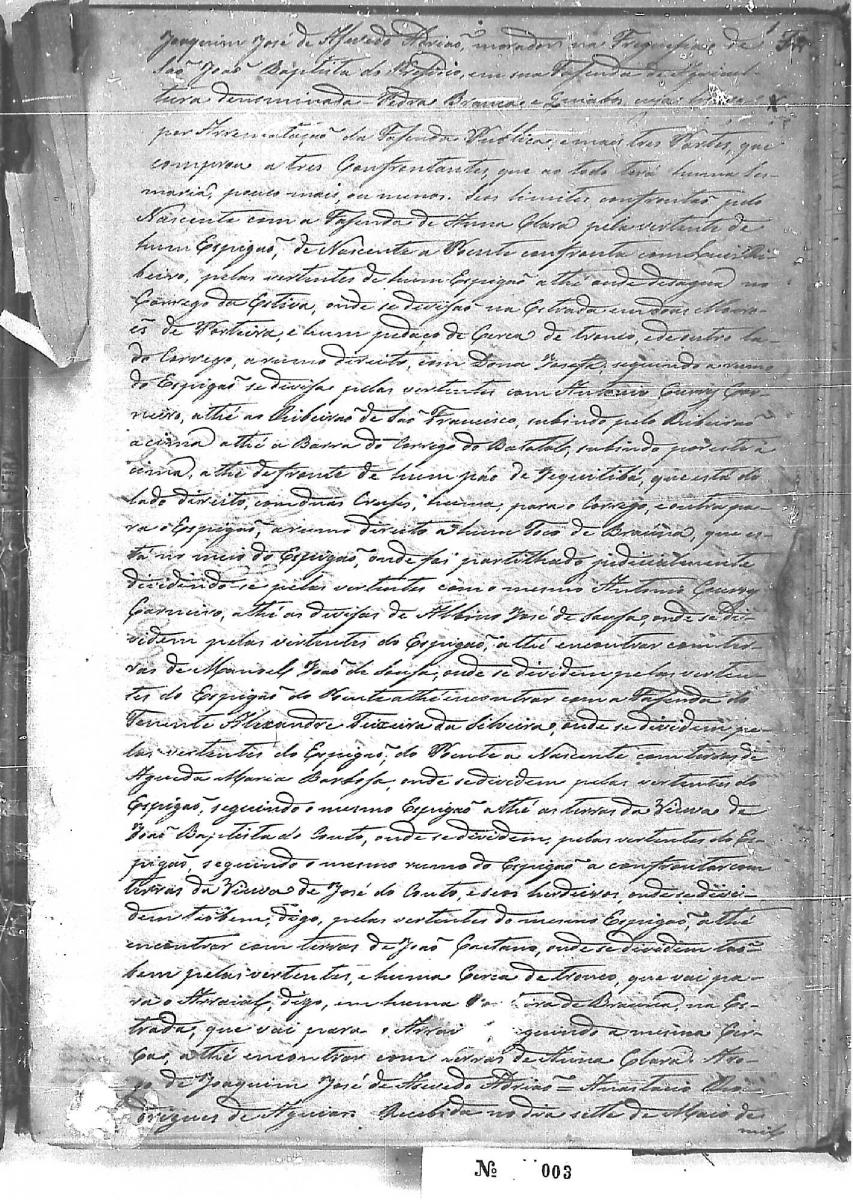 Joaquim José de Asevedo Adriaõ, morador na Freguesia de
Saõ João Baptista do Presidio, em sua Fasenda de Agricul-
tura denominada = Pedra Branca, e Quiabos, cuja houve
per Arrematação da Fasenda Publica, e mais tres Partes, que
comprou a tres Confrontantes, que ao todo terá huma Ses-
maria, pouco mais, ou menos. Seos limites confrontaõ pelo
Nascente com a Fasenda de Anna Clara pela vertente de
hum Espigaõ, de Nascente a Poente confronta com Luis Ri-
beiro, pelas vertentes de hum Espigaõ athé onde desagua no
Corrego da Estiva, onde se divisaõ na Estrada em dous Moiro-
ẽs de Porteira, e hum pedaço de Cerca de tronco, e de outro la-
do Corrego, a rumo direito, com Dona Josefa, seguindo a rumo
do Espigaõ se divisa pelas vertentes com Antonio Gomes Car-
neiro, athé ao Ribeiraõ de Saõ Francisco, subindo pelo Ribeiraõ
acima athé a Barra do Corrego do Batatal, subindo por esta á
cima, athe defronte de hum páo de Jequitibá, que está do
lado direito, com duas Cruses, huma, para o Corrego, e outra pa-
ra o Espigaõ, a rumo direito a hum Toco de Braúna, que es-
tá no meio do Espigaõ, onde foi partilhado judicialmente
dividindo-se pelas vertentes com o mesmo Antonio Gomes
Carneiro, athé as divisas de Albino José de Sousa, onde se di-
videm pelas vertentes do Espigaõ, athé encontrar com ter-
ras de Manoel Joaõ de Sousa, onde se dividem pelas verten-
tes do Espigaõ do Poente athé encontrar com a Fasenda do
Tenente Alexandre Teixeira da Silveira, onde se dividem pe-
las vertentes do Espigaõ, do Poente a Nascente com terras de
Agueda Maria Barbosa, onde se dividem pelas vertentes do
Espigaõ, seguindo o mesmo Espigaõ athé as terras da Viuva de
Joaõ Baptista do Couto, onde se dividem, pelas vertentes do Es-
pigaõ, seguindo o mesmo rumo do Espigaõ a confrontar com
terras da Viuva de José do Couto, e seos herdeiros, onde se divi-
dem tãobem, digo, pelas vertentes do mesmo Espigaõ, athé
encontrar com terras de Joaõ Caetano, onde se dividem tão-
bem pelas vertentes, e huma Cerca de tronco, que vai pa-
ra o Arraial, digo, em huma de Braúna, na Es-
trada, que vai para o Arrai guindo a mesma Cer-
ca, athé encontrar com terras de Anna Clara. Aro-
go de Joaquim José de Asevedo Adriaõ = Anastacio Ro-
drigues de Aguiar. Recebida no dia sette de Maio de
mil
Nº 003